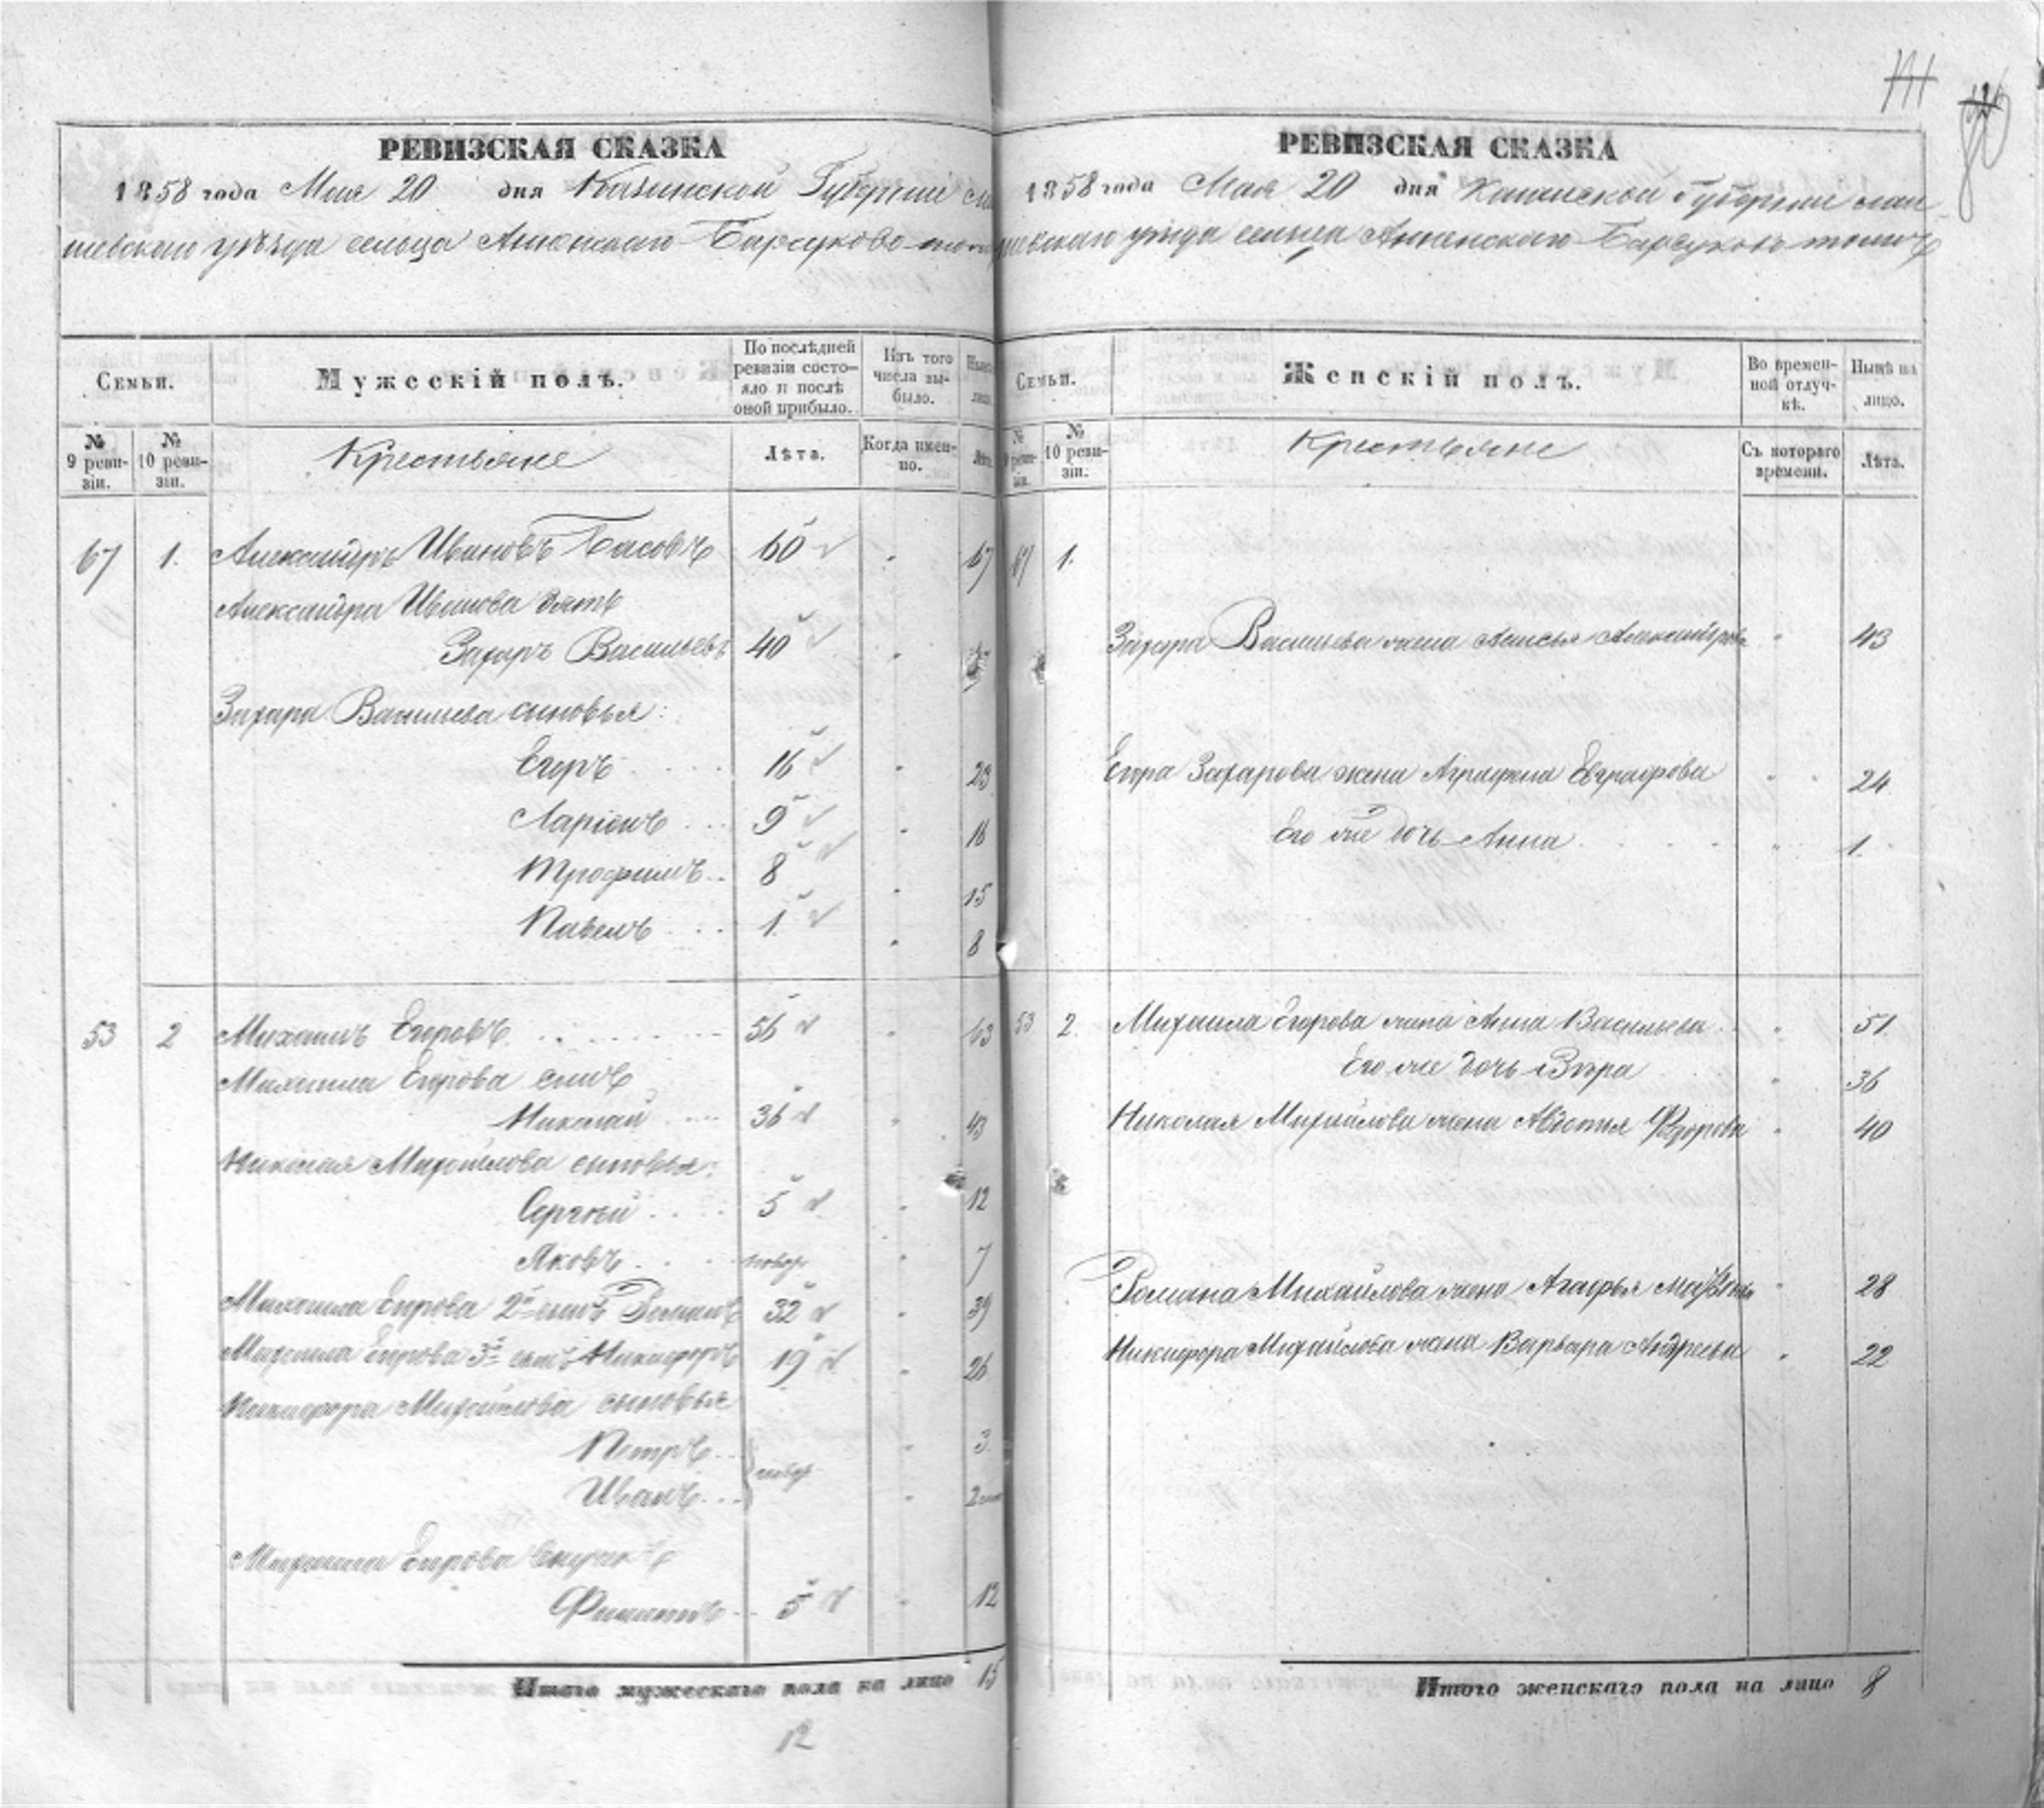 РЕВИЗСКАЯ СКАЗКА
1858 года Мая 20 дня Казанской Губернии
шевскаго уѣзда сельца Аненскаго Барсуково тожъ
Семьи.
Мужескій полъ.
По послѣдней ревизіи состояло и послѣ оной прибыло.
Изъ того числа выбыло.
Нынѣ
лицо.
№ 9 ревизіи.
№ 10 ревизіи.
Крестьяне
Лѣта.
Когда именно.
Лѣта.
67 1. Александръ Ивановъ Басовъ 60 " 67
Александра Иванова зять
Захаръ Васильевъ 40 "
Захара Васильева сыновья:
Егоръ 16 " 23
Ларіонъ 9 " 16
Трофимъ 8 " 15
Павелъ 1. " 8
53 2 Михаилъ Егоровъ 56 " 63
Михаила Егорова сынъ
Николай 36 " 43
Николая Михайлова сыновья:
Сергѣй 5 " 12
Яковъ новор " 7
Михаила Егорова 2й сынъ Романъ 32 " 39
Михаила Егорова 3й сынъ Никифоръ 19 " 26
Никифора Михайлова сыновья
Петръ " 3
новор
Иванъ " 2
Михаила Егорова внукъ
Филиппъ 5 " 12
Итого мужескаго пола на лицо 15
12
111
РЕВИЗСКАЯ СКАЗКА
1858 года Мая 20 дня Казанской Губернии лаи
шевскаго уѣзда сельца Анненскаго Барсуково тожъ
Семьи.
Женскій полъ.
Во временной отлучкѣ.
Нынѣ на лицо.
№ ревизіи.
№ 10 ревизіи.
Крестьяне
Съ котораго времени.
Лѣта.
67 1.
Захара Васильева жена Александрова " 43
Егора Захарова жена Аграфена Евграфова " 24
Его же дочь Анна " 1.
53 2. Михаила Егорова жена Анна Васильева " 51.
Его же дочь Вѣра " 36
Николая Михайлова жена Авдотья Федорова " 40
Романа Михайлова жена Агафья " 28
Никифора Михайлова жена Варвара Андреева " 22
Итого женскаго пола на лицо 8